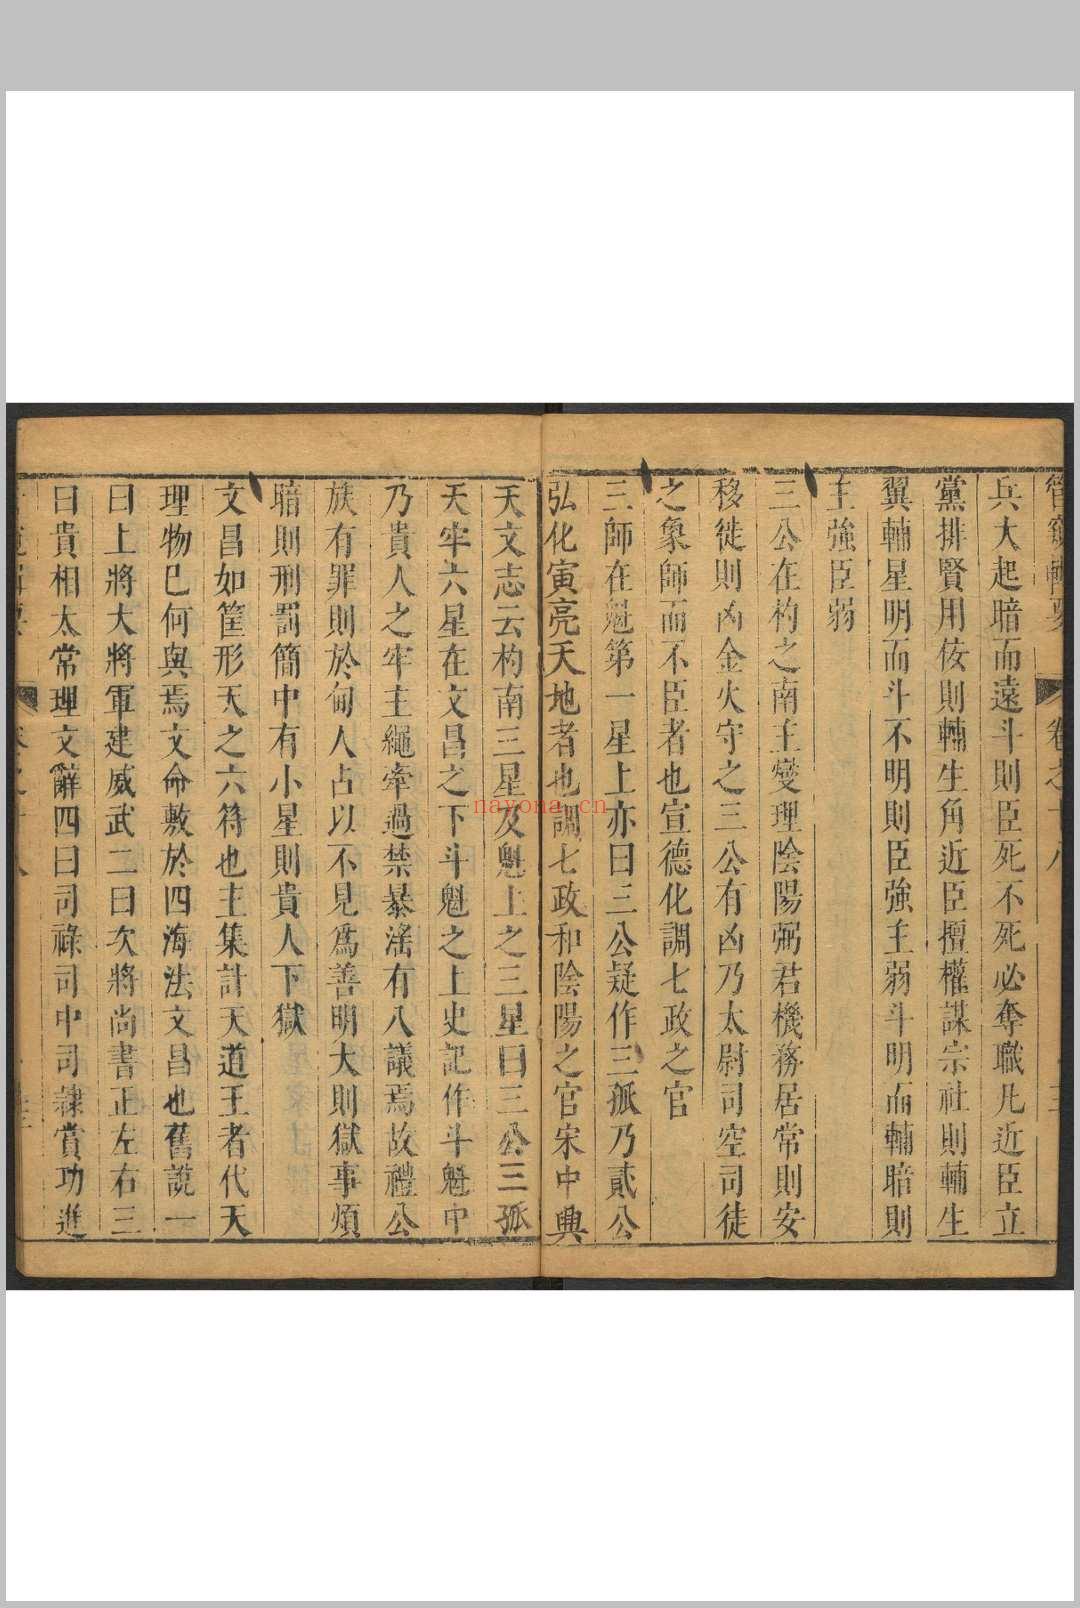 管窺輯要 卷之十八
兵大起暗而遠斗則臣死不死必奪職凡近臣立
黨排賢用佞則輔生角近臣擅權謀宗社則輔生
翼輔星明而斗不明則臣強主弱斗明而輔暗則
主強臣弱
三公在杓之南主變理陰陽弼君機務居常則安
移徙則凶金火守之三公有凶乃太尉司空司徒
之象師而不臣者也宣德化調七政之官
三師在魁第一星上亦曰三公疑作三孤乃貳公
弘化寅亮天地者也調七政和陰陽之官宋中興
天文志云杓南三星及魁上之三星曰三公三孤
天牢六星在文昌之下斗魁之上史記作斗魁中
乃貴人之牢主繩牽過禁暴滛有八議焉故禮公
族有罪則於甸人占以不見爲善明大則獄事煩
暗則刑罰簡中有小星則貴人下獄
文昌如筐形天之六符也主集計天道王者代天
理物已何與焉文命敷於四海法文昌也舊說一
曰上將大將軍建威武二曰次將尚書正左右三
曰貴相太常理文辭四曰司祿司中司隸賞功進
nayona.cn